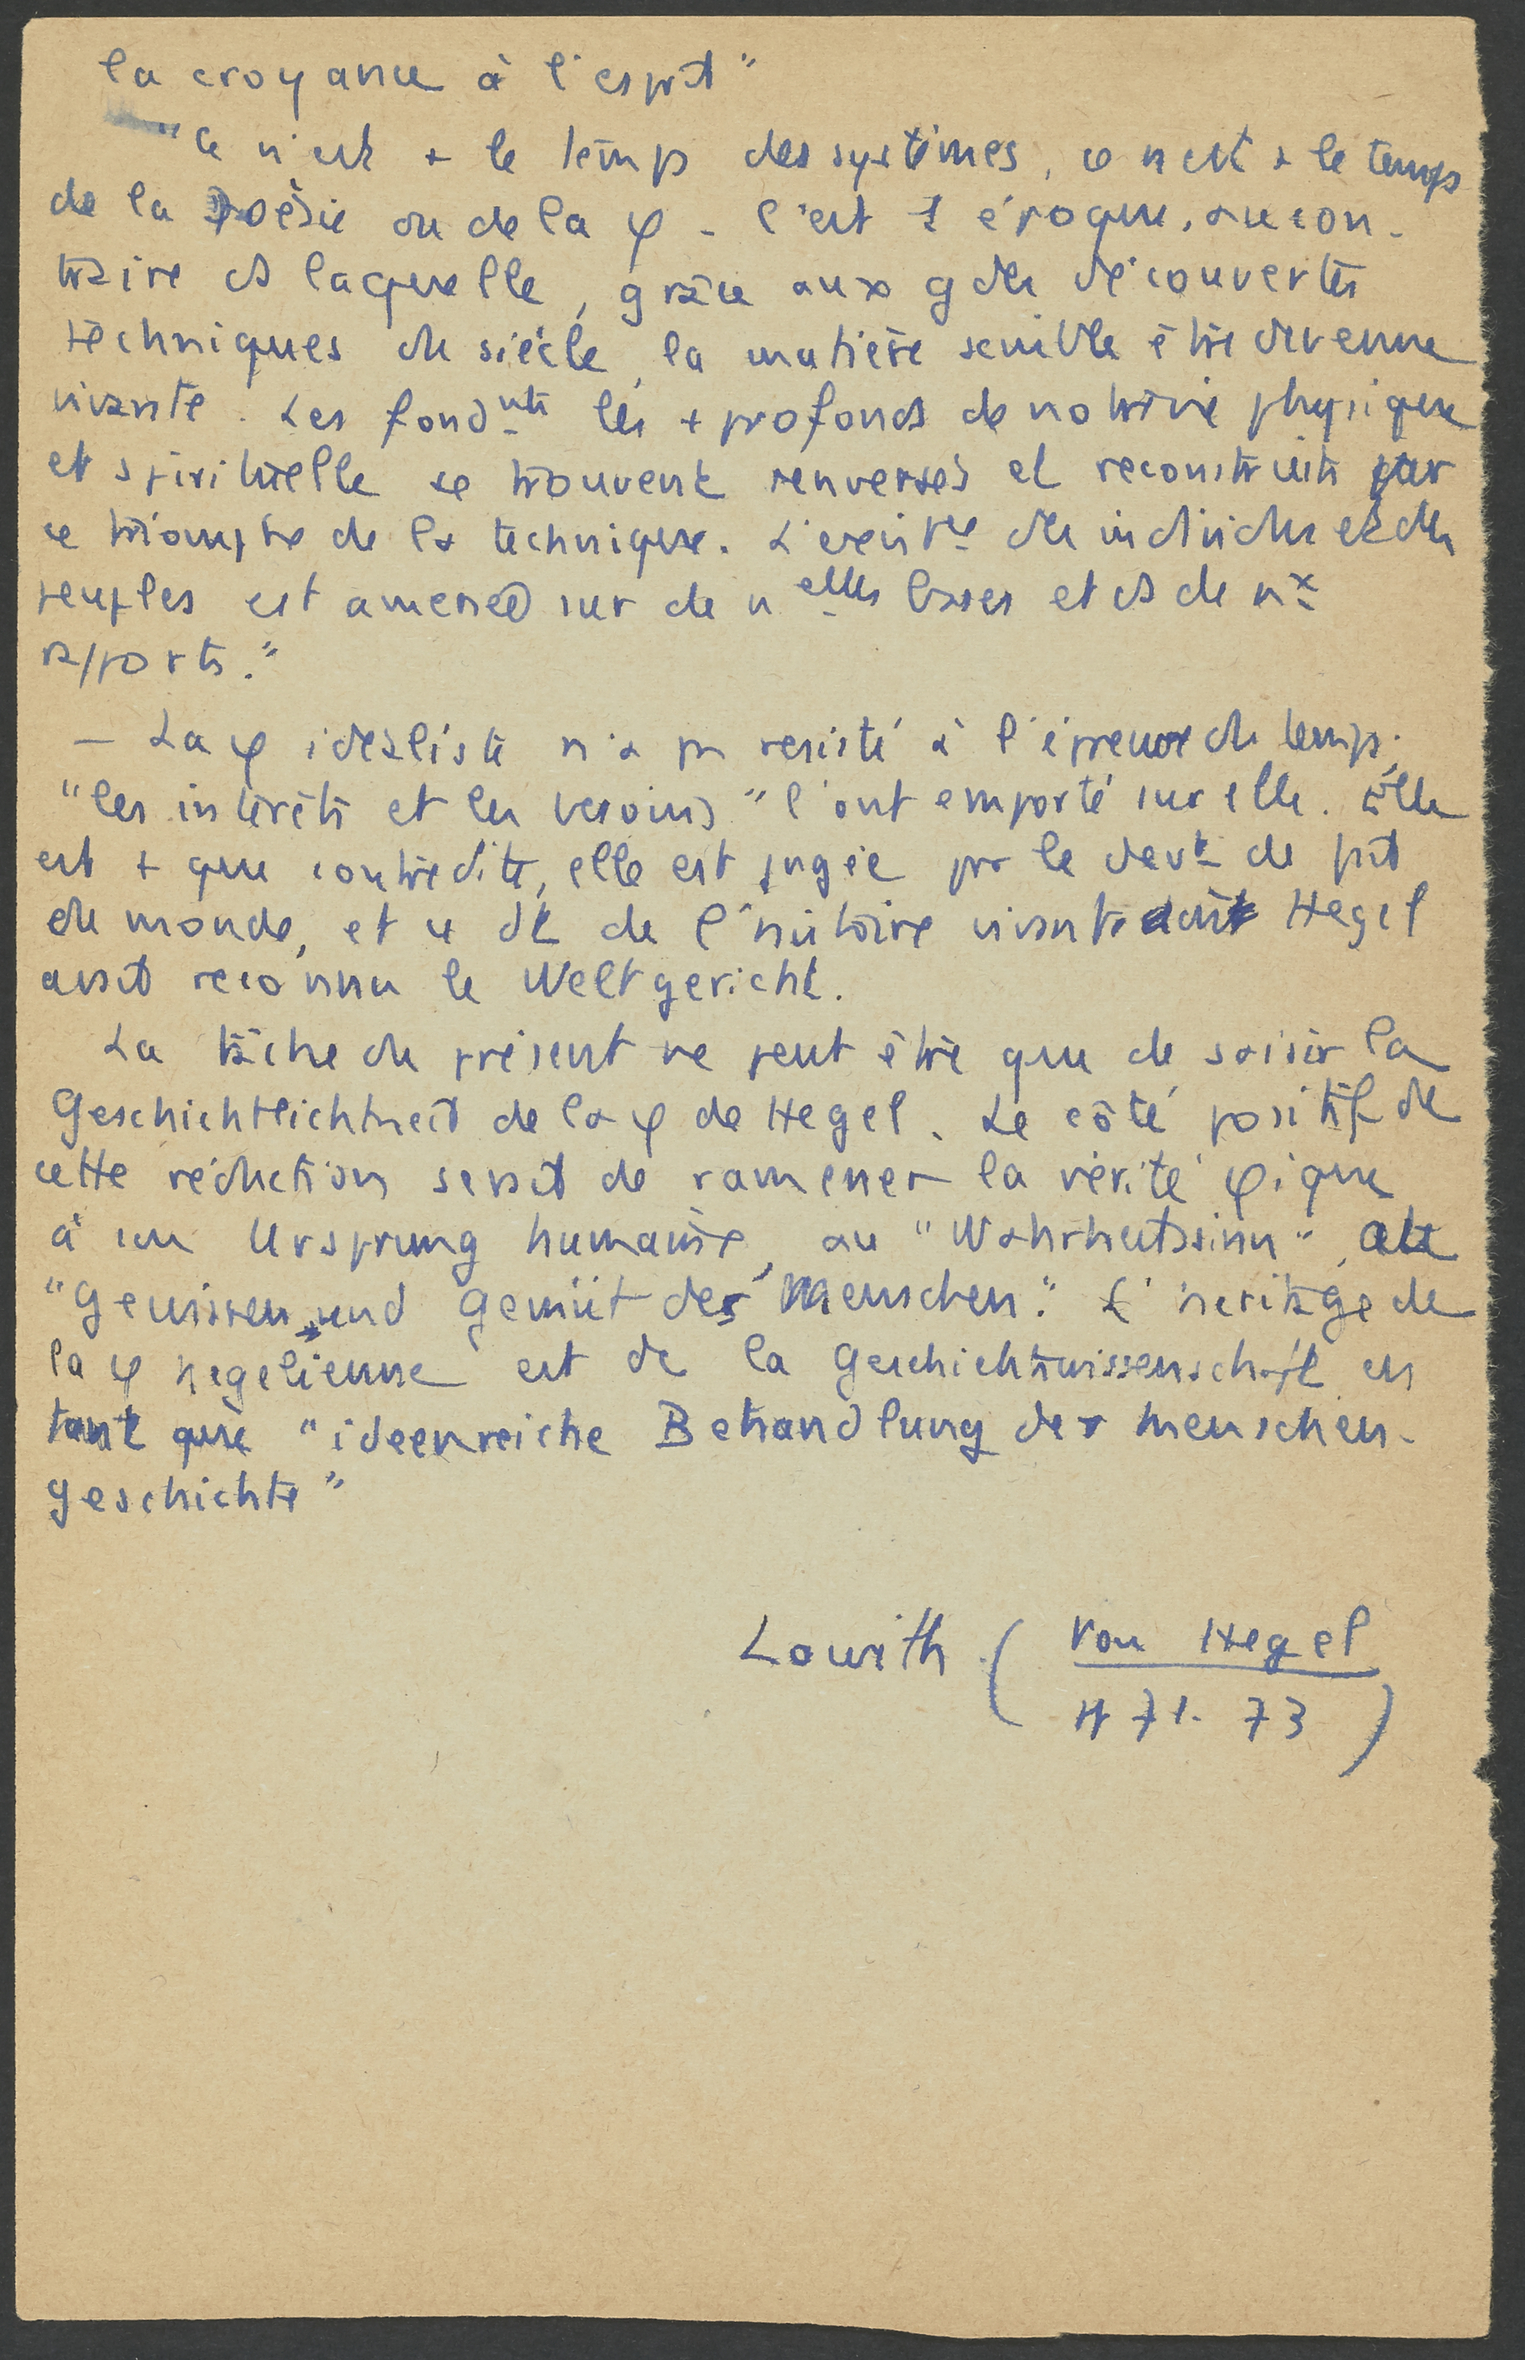 la croyance à l'esprit"
"Ce n'est + le temps des systèmes, ce n'est + le temps
de la Poésie ou de la φ - c'est 1 époque, au con-
traire ds laquelle, grâce aux gdes découvertes
techniques du siècle, la matière semble être devenue
vivante. Les fondnts les + profonds de notre vie physique
et spirituelle se trouvent renversés et reconstruits par
ce triomphe de la technique. L' des individus et des
peuples est amenée sur de nelles bases et ds de nx
rapports."
- La φ idéaliste n'a pu résisté à l'épreuve du temps.
"les intérêts et les besoins" l'ont emporté sur elle. Elle
est + que contredite, elle est jugée par le devt de fait
du monde, et ce dt de l'histoire vivante dont Hegel
avait reconnu le Weltgericht.
La tâche du présent ne peut être que de saisir la
Geschichtlichkeit de la φ de Hegel. Le côté positif de
cette réduction serait de ramener la vérité φique
à un Ursprung humaine, au "Wahrheitssinn", au
"Gewissen und Gemüt des Menschen". L'héritage de
la φ hegelienne est de la Geschichtswissenschaft en
tant que "ideenreiche Behandlung der Menschen-
geschichte"
Lowith (Von Hegel
pp 71-73)